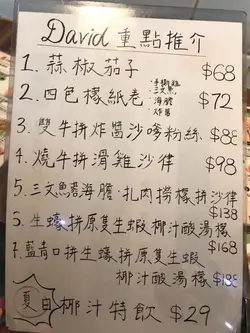 David 重點推介
1. 蒜椒茄子 $68
2. 四色檬紙卷 $72
·手撕雞
·三文魚
·海膽
·炸醬
3. 雙牛拼炸醬沙嗲粉絲 $8
4. 燒牛拼滑雞沙律 $98
5. 三文魚卷海膽·扎肉撈檬拼沙律 $138
6. 生蠔拼原隻生蝦椰汁酸湯檬 $168
7. 藍青口拼生蠔拼原隻生蝦
椰汁酸湯檬
夏日椰汁特飲 $29